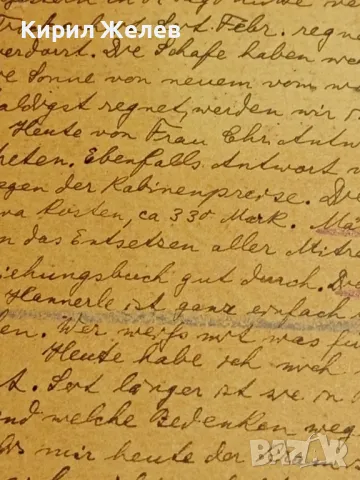 Кирил Желев
Febr. regne
verdorrt. Die Schafe haben we
ve Sonne von neuem vom w
aldigst regnet, werden wir
Heute von Frau Chr. Antw
heten. Ebenfalls Antwort
egen der Kabinenpreise. Di
wa kosten, ca 330 Mark.
n das Entsetzen aller Mitre
iehungsbuch gut durch. Di
Hannerle ist ganz einfach
en. Wer weiß mit was fü
Heute habe ich noch
t. Seit länger ist sie in
nd welche Bedenken weg
mir heute der
BAZAR